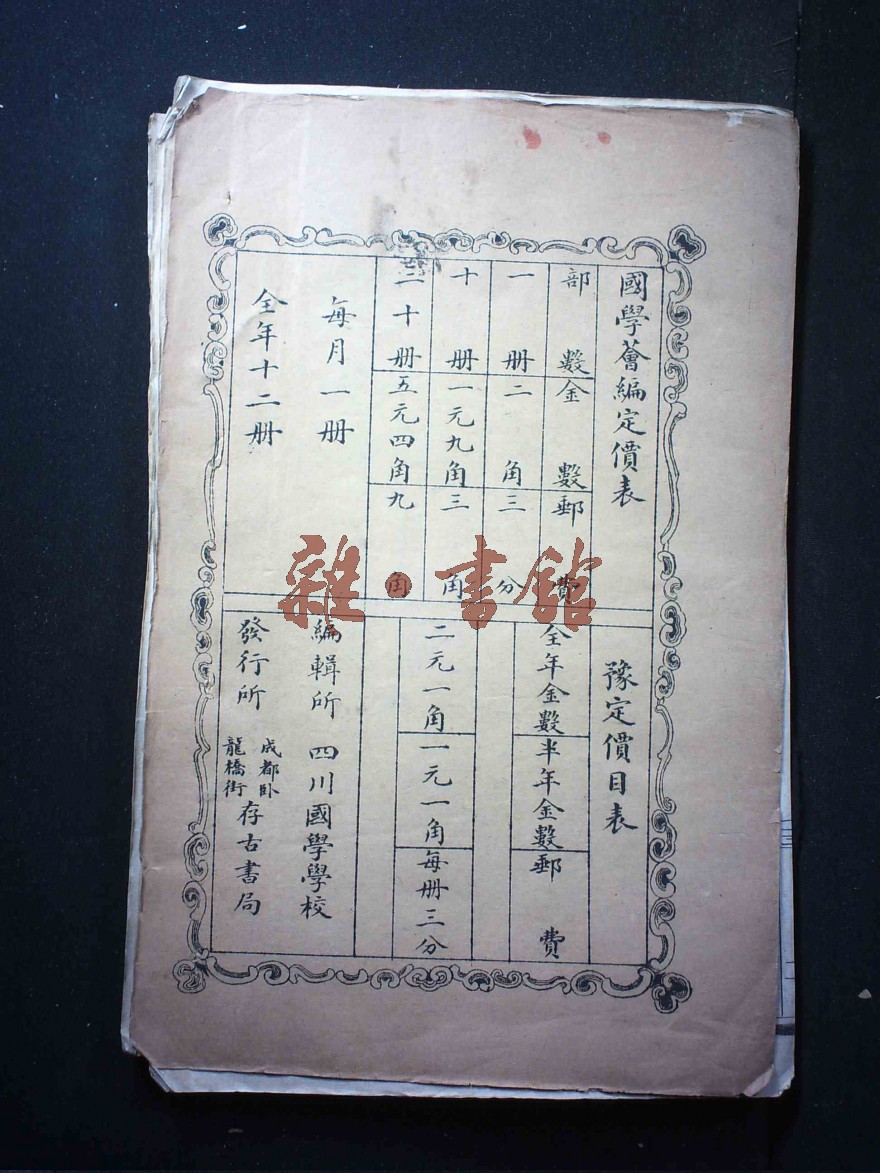 國學薈編定價表
部數 金數 郵費
一册 二角 三分
十册 一元九角 三角
三十册 五元四角 九角
每月一册
全年十二册
豫定價目表
全年金數 半年金數 郵費
二元一角 一元一角 每册三分
編輯所 四川國學學校
發行所 成都卧龍橋街 存古書局
雜·書館